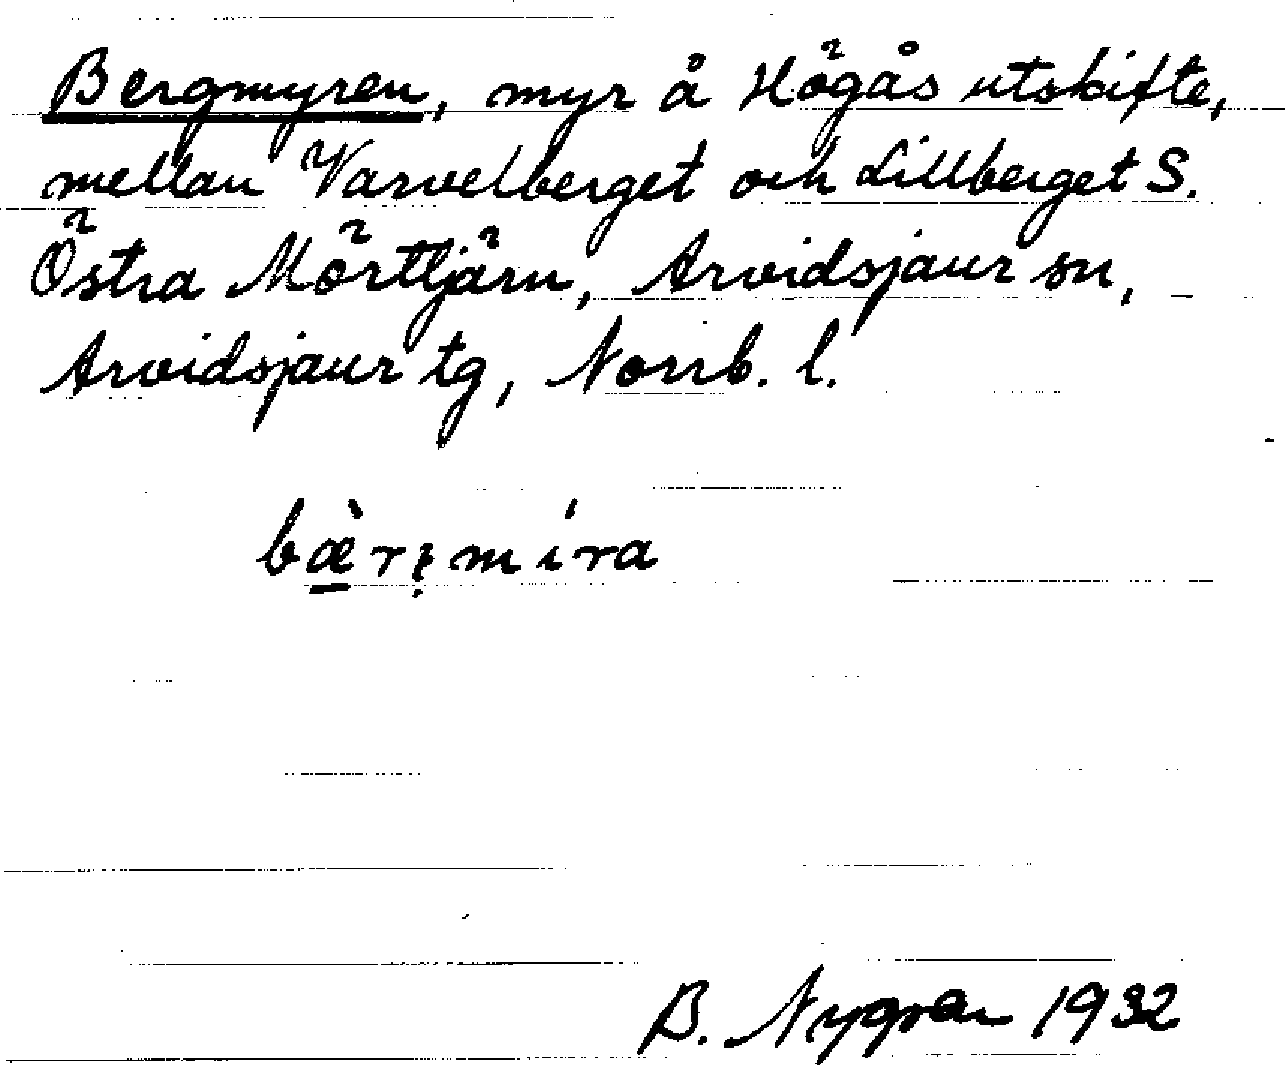 Bergmyren, myr å Högås utskifte,
mellan Varvelberget och Lillberget S.
Östra Mörttjärn, Arvidsjaur sn,
Arvidsjaur tg, Norrb. l.
B. Nygren 1932